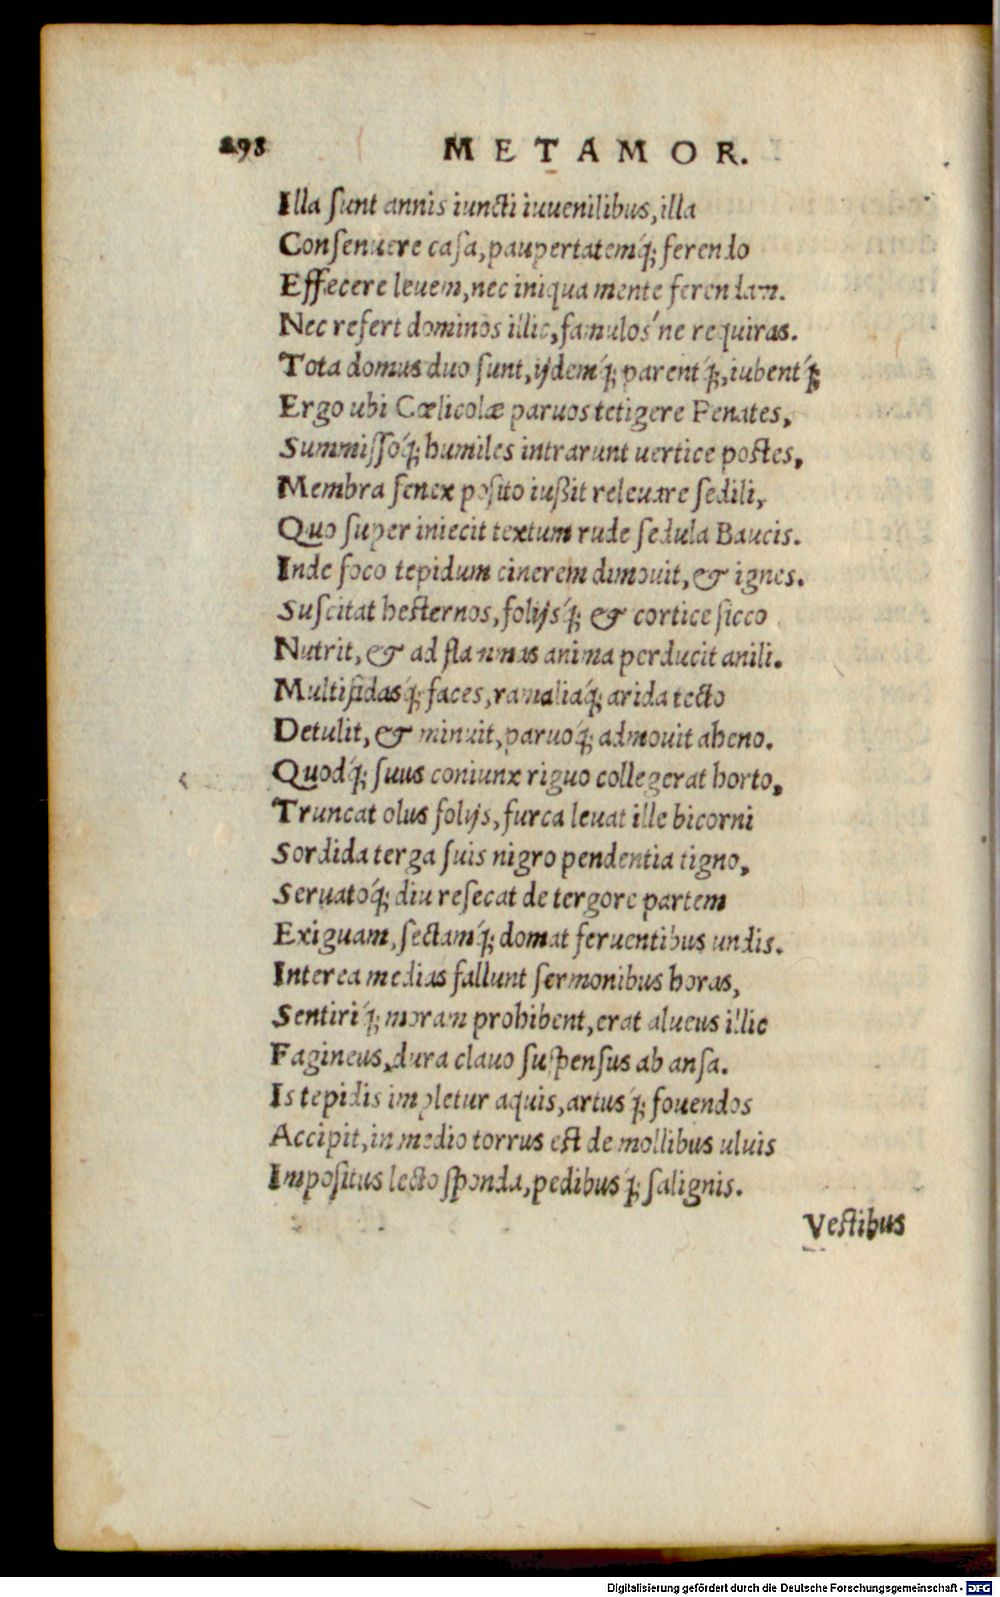 298 METAMOR.
Illa ſunt annis iuncti iuuenilibus, illa
Conſenuere caſa, paupertatemq́; ferendo
Effecere leuem, nec iniqua mente ferendam.
Nec refert dominos illic, famulos'ne requiras.
Tota domus duo ſunt, ijdemq́; parentq́;, iubentq́;
Ergo ubi Cœlicolæ paruos tetigere Penates,
Summiſſoq́; humiles intrarunt uertice postes,
Membra ſenex poſito iußit releuare ſedili,
Quo ſuper iniecit textum rude ſedula Baucis.
Inde foco tepidum cinerem dimouit, & ignes.
Suſcitat hesternos, folijsq́; & cortice ſicco
Nutrit, & ad flammas anima perducit anili.
Multifidasq́; faces, ramaliaq́; arida tecto
Detulit, & minuit, paruoq́; admouit aheno.
Quodq́; ſuus coniunx riguo collegerat horto,
Truncat olus folijs, furca leuat ille bicorni
Sordida terga ſuis nigro pendentia tigno,
Seruatoq́; diu reſecat de tergore partem
Exiguam, ſectamq́; domat feruentibus undis.
Interea medias fallunt ſermonibus horas,
Sentiriq́; moram prohibent, erat alueus illic
Fagineus, dura clauo ſuſpenſus ab anſa.
Is tepidis impletur aquis, artusq́; fouendos
Accipit, in medio torrus est de mollibus uluis
Impoſitus lecto ſponda, pedibusq́; ſalignis.
Vestibus
Digitalisierung gefördert durch die Deutsche Forschungsgemeinschaft - DFG